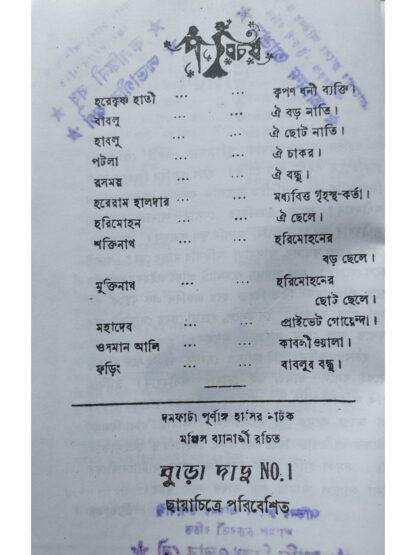 পরিচয়
হরেকৃষ্ণ হাতী ... ... কৃপণ ধনী ব্যক্তি।
বাবলু ... ... ঐ বড় নাতি।
হাবলু ... ... ঐ ছোট নাতি।
পটলা ... ... ঐ চাকর।
রসময় ... ... ঐ বন্ধু।
হরেরাম হালদার ... ... মধ্যবিত্ত গৃহস্থ-কর্তা।
হরিমোহন ... ... ঐ ছেলে।
শক্তিনাথ ... ... হরিমোহনের
বড় ছেলে।
মুক্তিনাথ ... ... হরিমোহনের
ছোট ছেলে।
মহাদেব ... ... প্রাইভেট গোয়েন্দা।
ওসমান আলি ... ... কাবলীওয়ালা।
ফড়িং ... ... বাবলুর বন্ধু।
দমফাটা পূর্ণাঙ্গ হাসির নাটক
মঞ্জিল ব্যানার্জী রচিত
বুড়ো দাদু NO.1
ছায়াচিত্রে পরিবেশিত